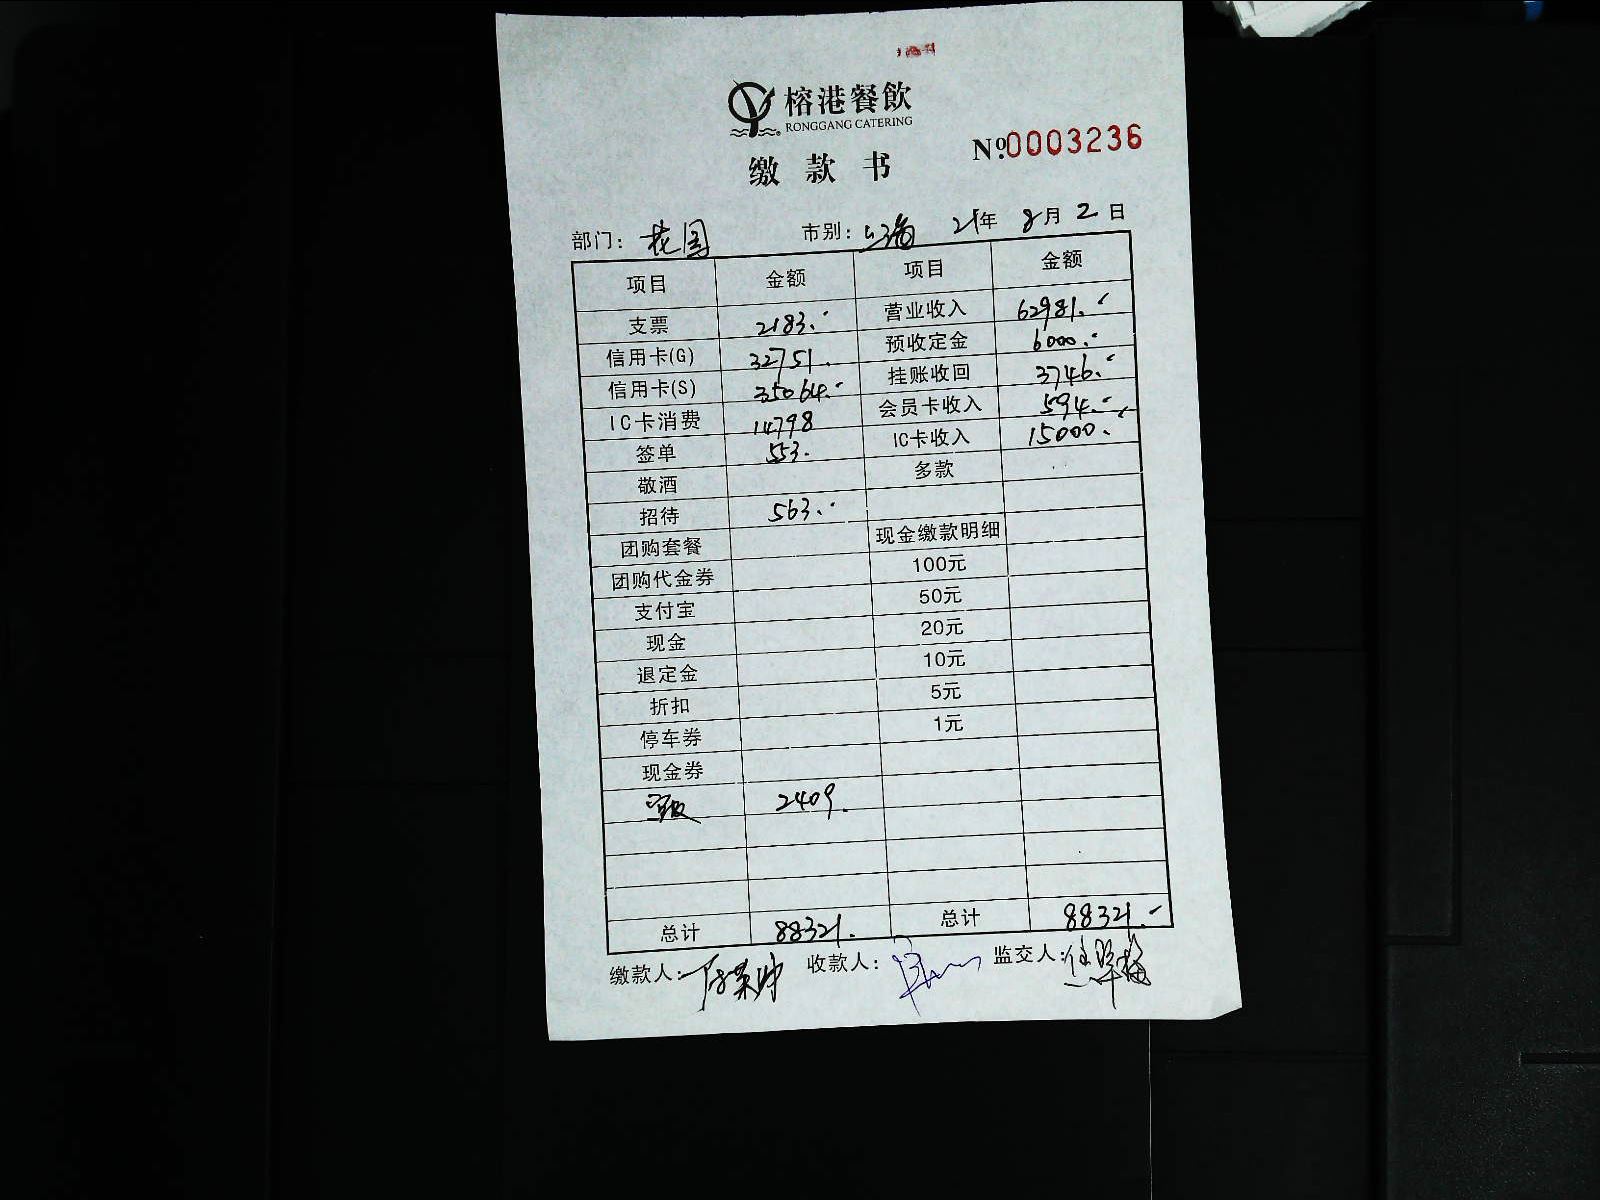 榕港餐飲
RONGGANG CATERING
缴款书
№0003236
部门: 花园 市别: 21年 8月 2日
项目 金额 项目 金额
支票 2183. 营业收入 62981.
信用卡(G) 32751. 预收定金 6000.
信用卡(S) 35064. 挂账收回 3746.
IC卡消费 14798 会员卡收入 594.
签单 553. IC卡收入 15000.
敬酒 多款
招待 563.
团购套餐 现金缴款明细
团购代金券 100元
支付宝 50元
现金 20元
退定金 10元
折扣 5元
停车券 1元
现金券
2409.
总计 88321. 总计 88321.
缴款人: 收款人: 监交人: